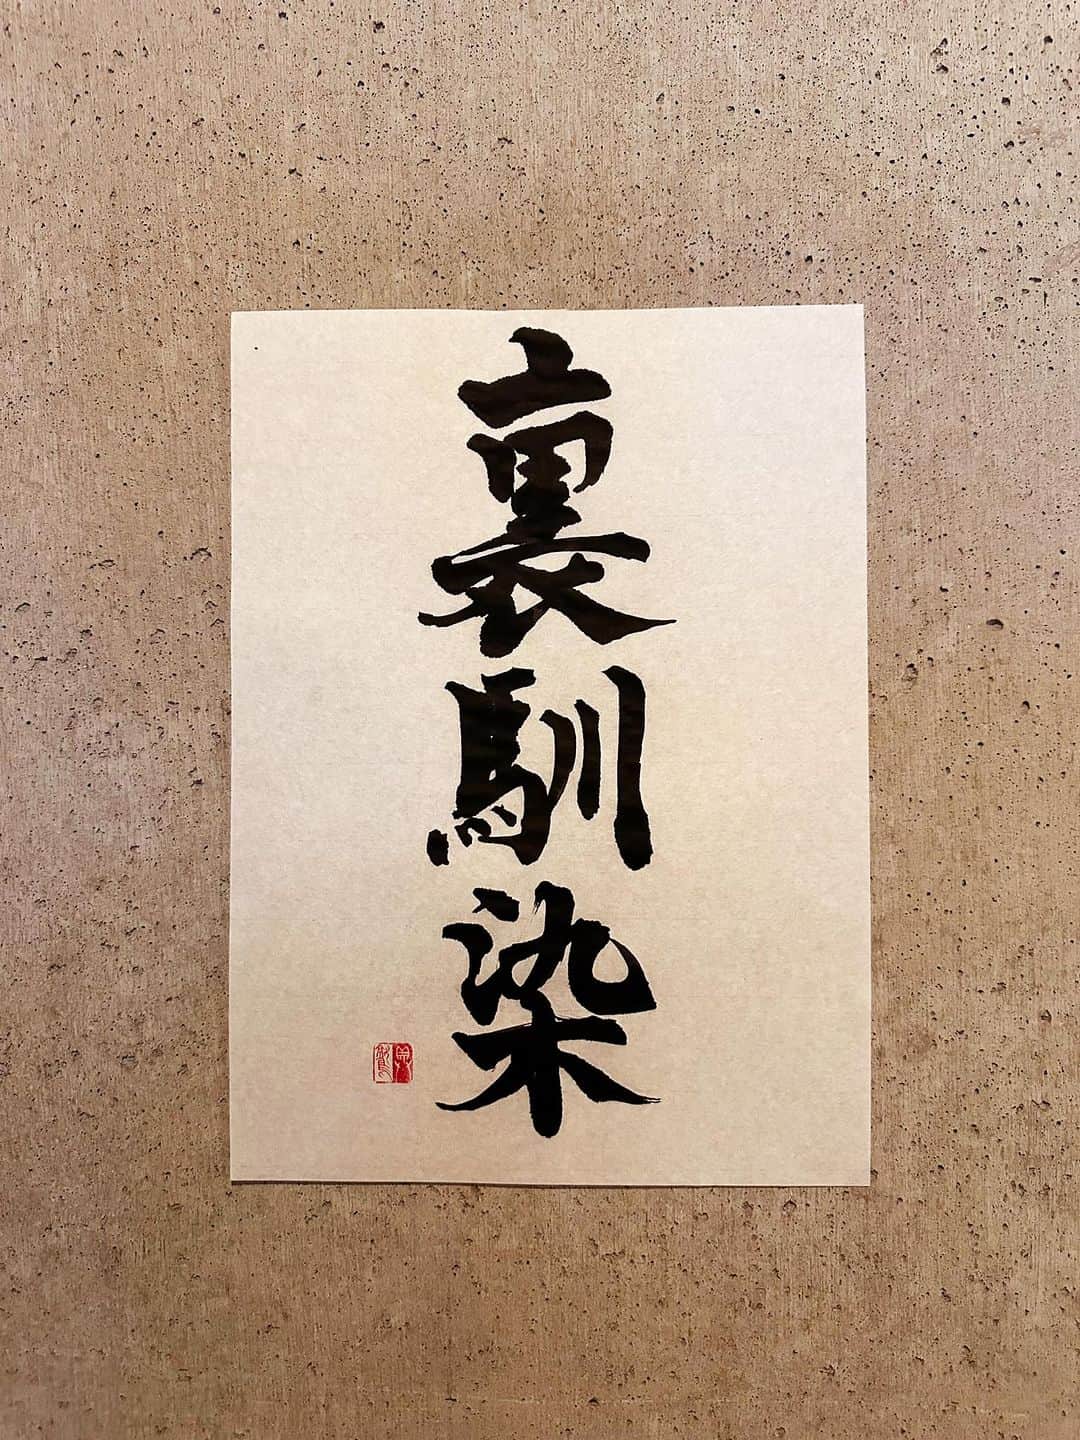 裏馴染